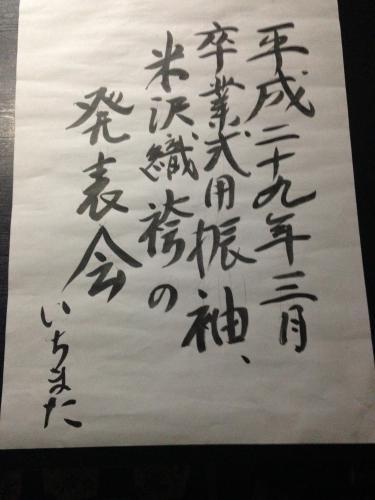 平成二十九年三月
卒業式用振袖、
米沢織袴の
発表会
いちまた